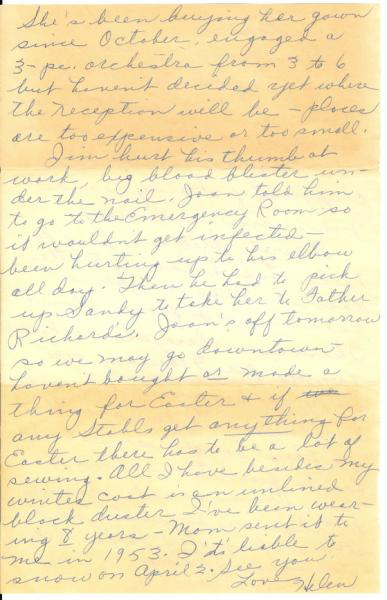 She's been buying her gown
since October, engaged a
3-pc. orchestra from 3 to 6
but haven't decided yet where
the reception will be - places
are too expensive or too small.
Jim hurt his thumb at
work, big blood blister un-
der the nail. Joan told him
to go to the Emergency Room so
it wouldn't get infected -
been hurting up to his elbow
all day. Then he had to pick
up Sandy to take her to Father
Richard's. Joan's off tomorrow
so we may go downtown -
haven't bought or made a
thing for Easter & if
any Stabls get anything for
Easter there has to be a lot of
sewing. All I have besides my
winter coat is an unlined
black duster I've been wear-
ing 8 years - Mom sent it to
me in 1953. It's liable to
snow on April 2. See you.
Love Helen